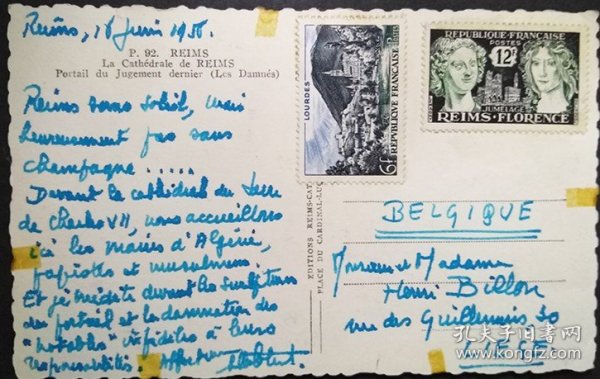 Reims, 18 juin 1958.
P. 92. REIMS
La Cathédrale de REIMS
Portail du Jugement dernier (Les Damnés)
Reims sans soleil, mais
heureusement pas sans
champagne .....
Devant la cathédrale du
de Charles VII, nous accueillons
ici les maires d'Algérie,
et musulmans.
Et je médite devant les sculptures
du portail et la damnation des
"notables" infidèles à leurs
responsabilités.
LOURDES
6f
REPUBLIQUE FRANÇAISE
Postes
REPUBLIQUE·FRANÇAISE
POSTES
12F
JUMELAGE
REIMS·FLORENCE
EDITIONS REIMS-CAT
PLACE DU CARDINAL-LUÇ
BELGIQUE
Monsieur et Madame
Henri Billon
rue des Guillemins 30
LIEGE
孔夫子旧书网
www.kongfz.com